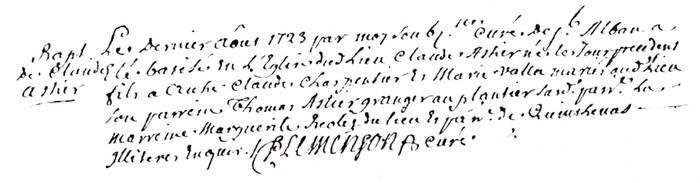 Bapt. Le dernier Aout 1723 par moy soubsne Curé de st Alban a
de Claude Eté batisé en L'Eglise dud Lieu Claude Astier né le Jour precedent
Astier fils a Claude Charpentier Et Marie valla mariés aud Lieu
son parrein Thomas Astier granger au plantier sa
marreine Marguerite du lieu Et parr. de Quinthenas
Illiteres Enquis. CLEMENSON Curé